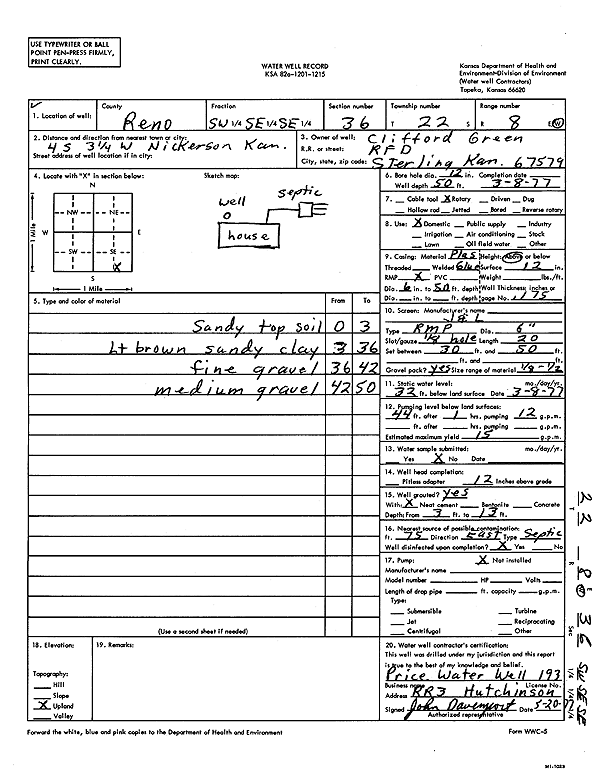 USE TYPEWRITER OR BALL
POINT PEN-PRESS FIRMLY,
PRINT CLEARLY.
WATER WELL RECORD
KSA 82a-1201-1215
Kansas Department of Health and
Environment-Division of Environment
(Water well Contractors)
Topeka, Kansas 66620
1. Location of well: County Reno Fraction SW 1/4 SE 1/4 SE 1/4 Section number 36 Township number T 22 S Range number R 8 E W
2. Distance and direction from nearest town or city: 4 S 3 1/4 W Nickerson Kan.
Street address of well location if in city:
3. Owner of well: Clifford Green
R.R. or street: RFD
City, state, zip code: Sterling Kan. 67579
4. Locate with "X" in section below:
N
NW NE
W E
SW SE
X
S
1 Mile
1 Mile
Sketch map:
septic
well
O
house
5. Type and color of material From To
Sandy top soil 0 3
Lt brown sandy clay 3 36
fine gravel 36 42
medium gravel 42 50
(Use a second sheet if needed)
6. Bore hole dia. 12 in. Completion date
Well depth 50 ft. 3-8-77
7. Cable tool X Rotary Driven Dug
Hollow rod Jetted Bored Reverse rotary
8. Use: X Domestic Public supply Industry
Irrigation Air conditioning Stock
Lawn Oil field water Other
9. Casing: Material Plas Height: Above or below
Threaded Welded Glue Surface 12 in.
RMP X PVC Weight lbs./ft.
Dia. 6 in. to 50 ft. depth Wall Thickness: inches or
Dia. in. to ft. depth gage No. .175
10. Screen: Manufacturer's name
Type RMP Dia. 6"
Slot/gauze 1/8 hole Length 20
Set between 30 ft. and 50 ft.
ft. and ft.
Gravel pack? yes Size range of material 1/8-1/2
11. Static water level: mo./day/yr.
32 ft. below land surface Date 3-8-77
12. Pumping level below land surfaces:
44 ft. after 1 hrs. pumping 12 g.p.m.
ft. after hrs. pumping g.p.m.
Estimated maximum yield 15 g.p.m.
13. Water sample submitted: mo./day/yr.
Yes X No Date
14. Well head completion:
Pitless adapter 12 Inches above grade
15. Well grouted? yes
With: X Neat cement Bentonite Concrete
Depth: From 3 ft. to 13 ft.
16. Nearest source of possible contamination:
ft. 75 Direction East Type Septic
Well disinfected upon completion? X Yes No
17. Pump: X Not installed
Manufacturer's name
Model number HP Volts
Length of drop pipe ft. capacity g.p.m.
Type:
Submersible Turbine
Jet Reciprocating
Centrifugal Other
18. Elevation:
Topography:
Hill
Slope
X Upland
Valley
19. Remarks:
20. Water well contractor's certification:
This well was drilled under my jurisdiction and this report
is true to the best of my knowledge and belief.
Price Water Well 193
Business name License No.
Address RR3 Hutchinson
Signed John Davenport Date 5-20-77
Authorized representative
Forward the white, blue and pink copies to the Department of Health and Environment
Form WWC-5
T 22 R 8 E W Sec 36
1/4 1/4 1/4 SW SE SE